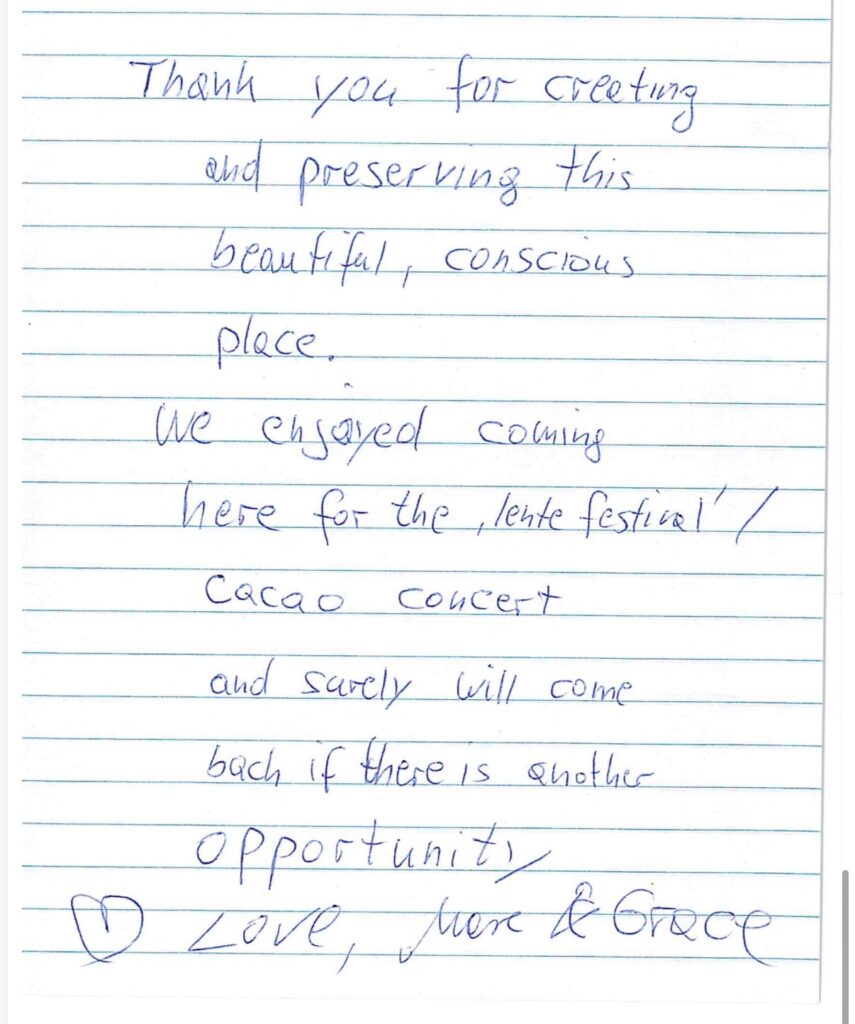 Thank you for creating
and preserving this
beautiful, conscious
place.
We enjoyed coming
here for the ‚lente festival' /
Cacao concert
and surely will come
back if there is another
opportunity
Love, Marc & Grace